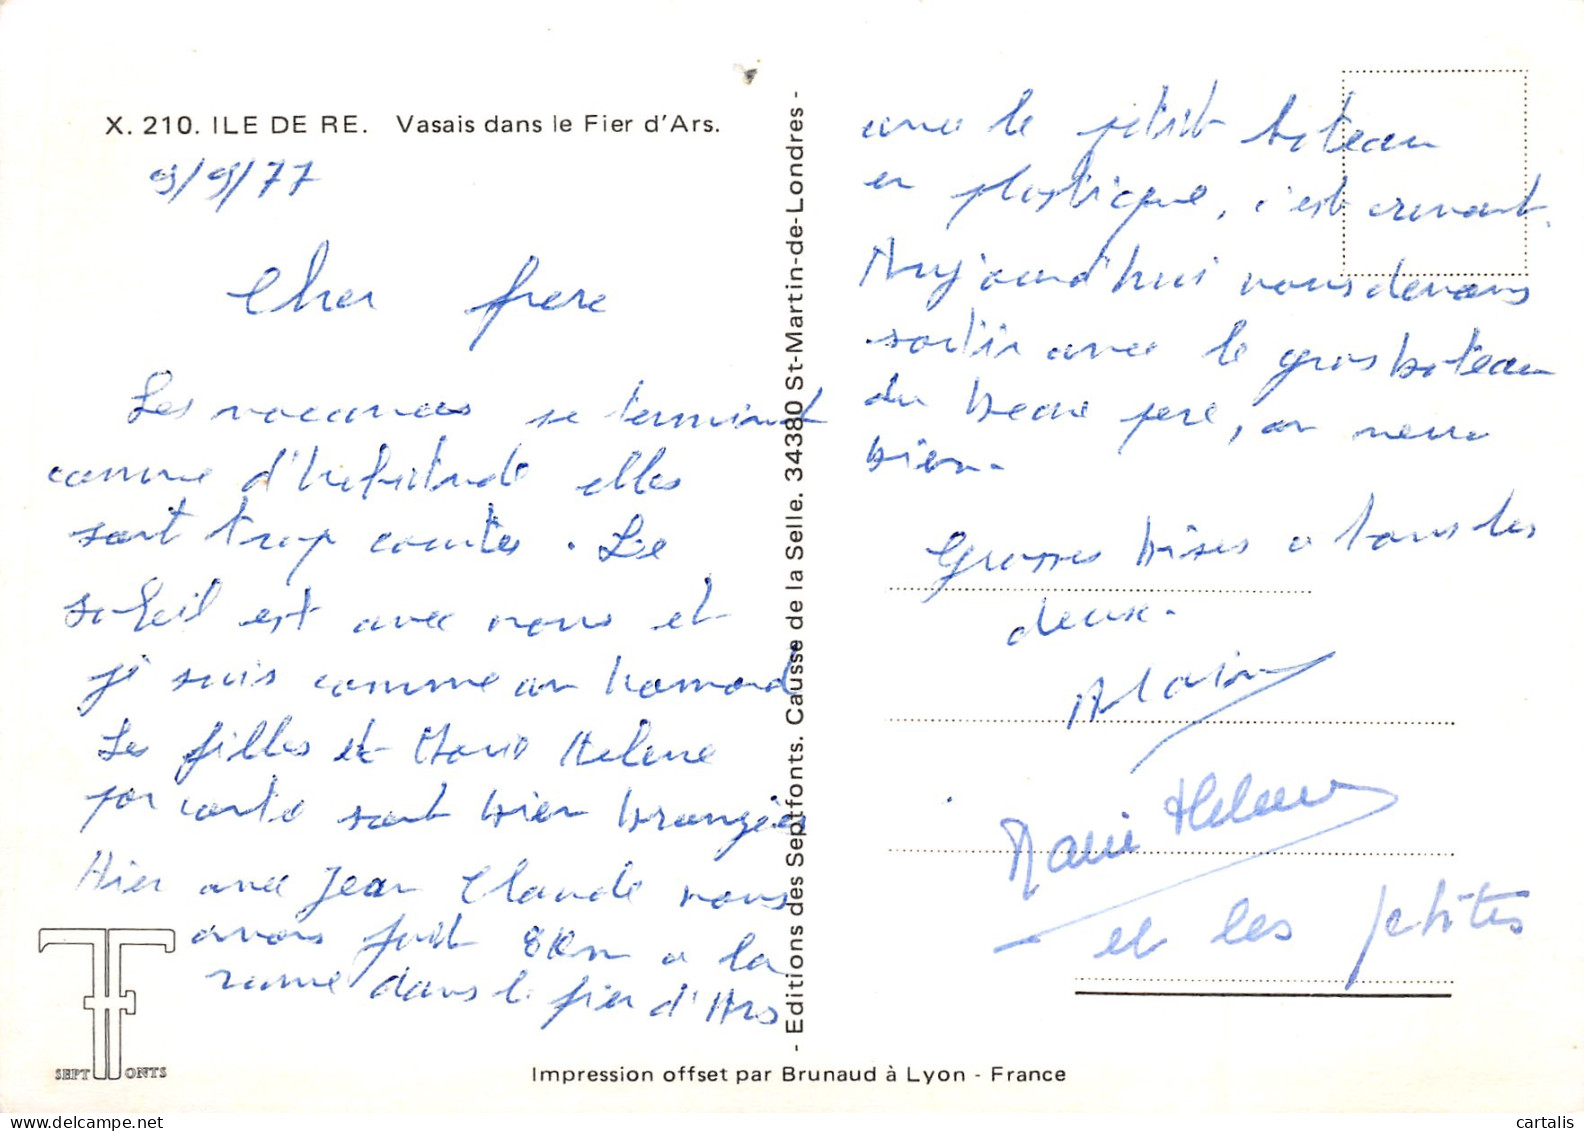 X. 210. ILE DE RE. Vasais dans le Fier d'Ars.
9/9/77
Cher frere
Les vacances se terminent
comme d'habitude elles
sont trop courtes. Le
soleil est avec nous et
je suis comme un homard
Les filles et Marie Helene
par contre sont bien bronzées
Hier avec Jean Claude nous
avons fait 8 km a la
rame dans le fier d'Ars
SEPT FONTS
- Editions des Septfonts. Causse de la Selle. 34380 St-Martin-de-Londres -
avec le petit bateau
en plastique, c'est crevant.
Aujourd'hui nous devons
sortir avec le gros bateau
du beau pere, on verra
bien.
Grosses bises a tous les
deux.
Alain
Marie Helene
et les petites
Impression offset par Brunaud à Lyon - France
cartalis